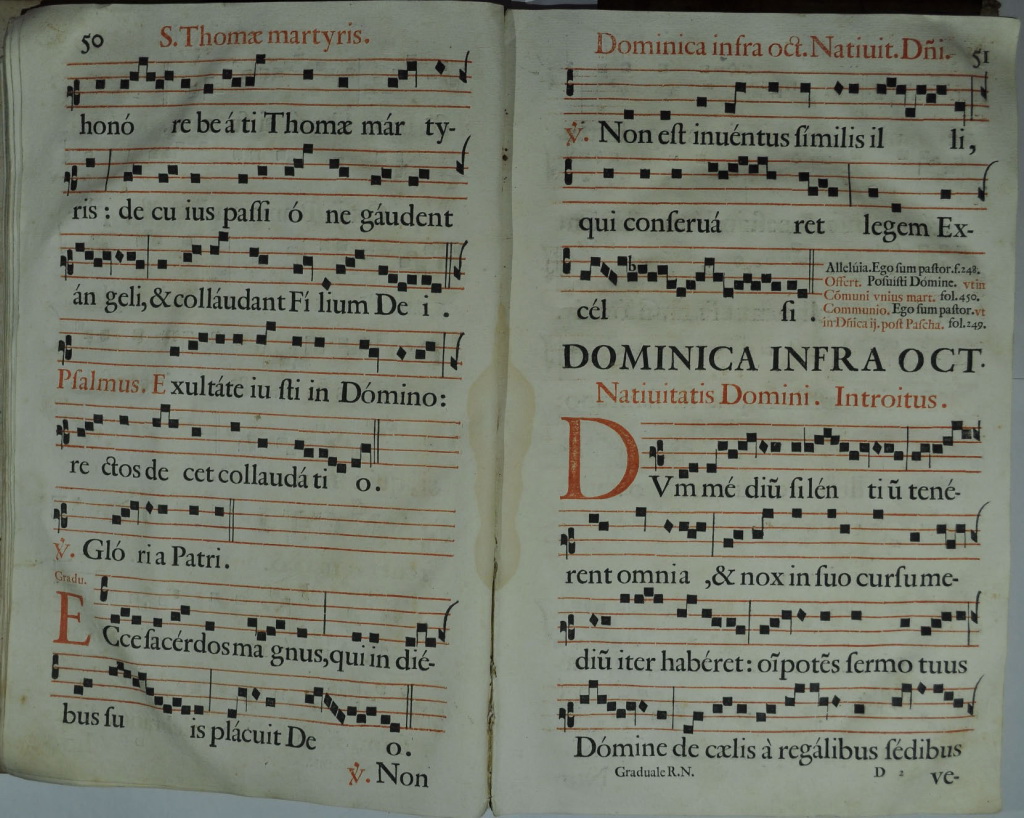 50
S. Thomæ martyris.
honó re be á ti Thomæ már ty-
ris : de cu ius paſſi ó ne gáudent
án geli, & colláudant Fí lium De i .
Pſalmus. E xultáte iu ſti in Dómino:
re ctos de cet collaudá ti o.
℣. Gló ri a Patri.
Gradu.
E Cce ſacérdos ma gnus, qui in dié-
bus ſu is plácuit De o.
℣. Non
Dominica infra oct. Natiuit. Dñi. 51
℣. Non eſt inuéntus ſímilis il li,
qui conſeruá ret legem Ex-
cél ſi .
Allelúia. Ego ſum paſtor. f. 248.
Offert. Poſuiſti Dómine. vt in
Cómuni vnius mart. fol. 450.
Communio. Ego ſum paſtor. vt
in Dñica ij. poſt Paſcha. fol. 249.
DOMINICA INFRA OCT.
Natiuitatis Domini . Introitus .
D Vm mé diũ ſilén ti ũ tené-
rent omnia ,& nox in ſuo curſu me-
diũ iter habéret : oĩpotẽs ſermo tuus
Dómine de cælis à regálibus ſédibus
Graduale R.N. D 2 ve-